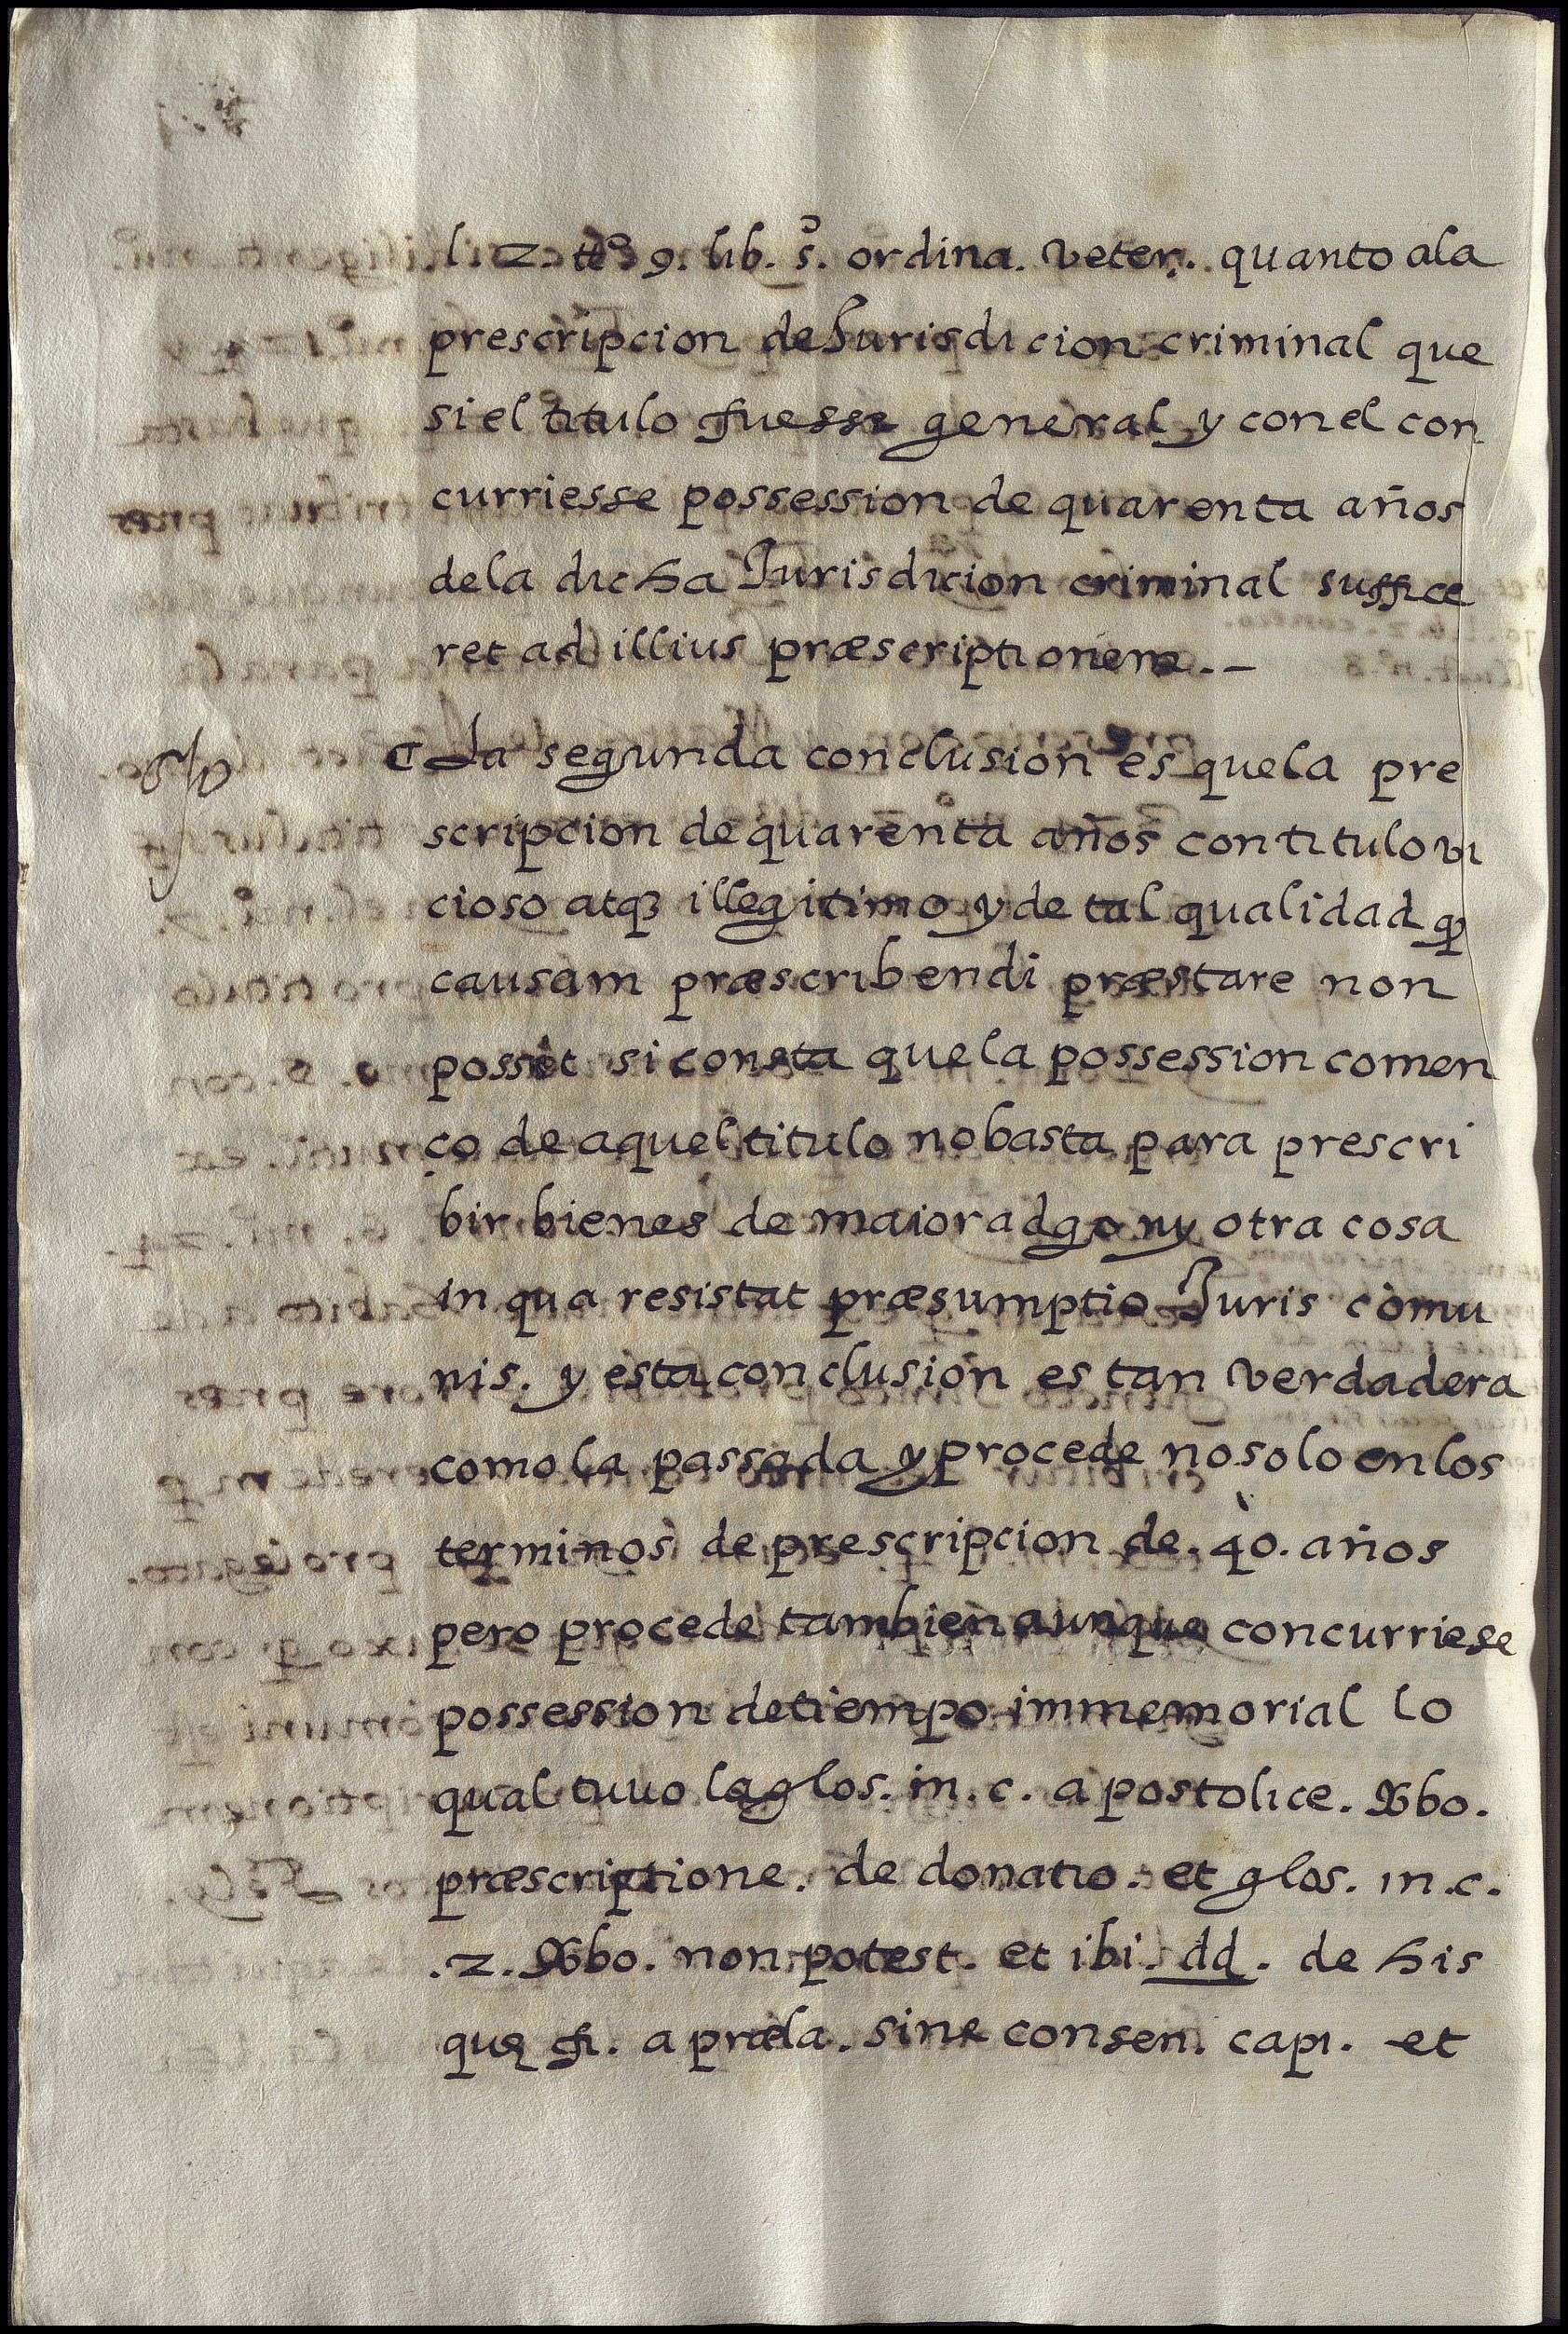 l. 2. tt̊ 9. lib. 5. ordina. veter. quanto ala
prescripcion de Jurisdicion criminal que
si el titulo fuesse general y con el con
curriesse possession de quarenta años
dela dicha Jurisdicion criminal suffice
ret ad illius præscriptionem. –
¶ La segunda conclusion es quela pre
scripcion de quarenta años con titulo vi
cioso atqꝫ illegitimo y de tal qualidad ꝙ
causam præscribendi præstare non
possit si consta que la possession comen
ço de aquel titulo no basta para prescri
bir bienes de maioradgo ny otra cosa
in qua resistat præsumptio Juris comu
nis. y esta conclusion es tan verdadera
como la passada y procede no solo en los
terminos de prescripcion de. 40. años
pero procede tambien aunque concurriese
possession de tiempo immemorial lo
qual tuuo la glos. in. c. apostolice. Vbo.
præscriptione. de donatio. et glos. in. c.
.2. Vbo. non potest. et ibi. dd. de his
quę fi. a præla. sine consen. capi. et